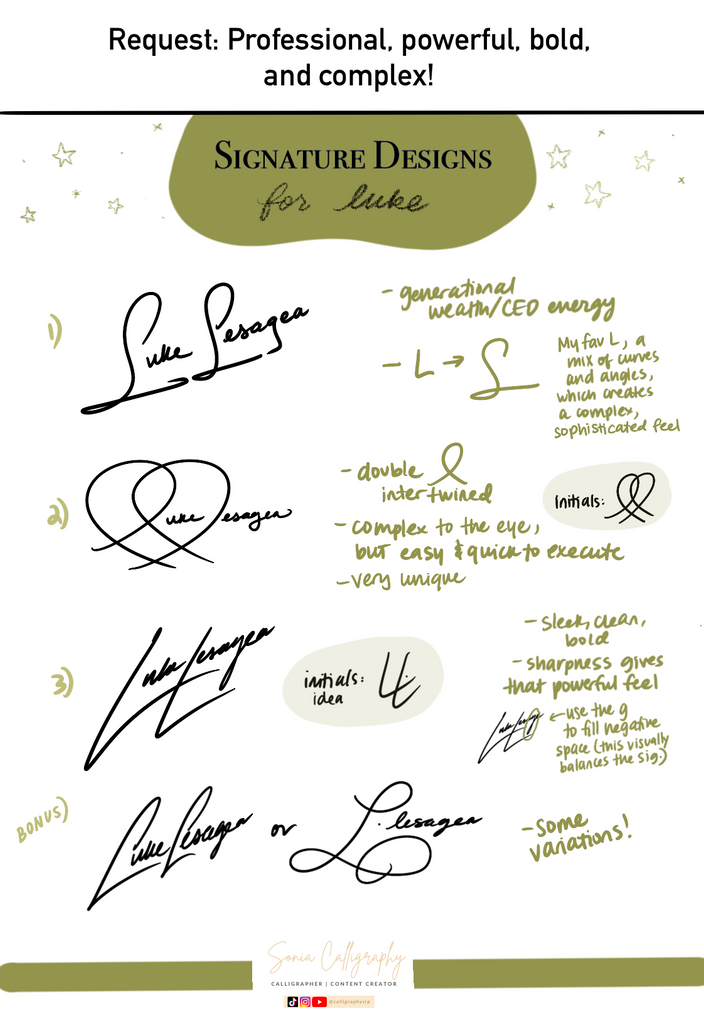 Request: Professional, powerful, bold,
and complex!
SIGNATURE DESIGNS
for luke
1)
Luke Lesagea
- generational
wealth/CEO energy
- L → L
My fav L, a
mix of curves
and angles,
which creates
a complex,
sophisticated feel
2)
Luke Lesagea
- double l
intertwined
- complex to the eye,
but easy & quick to execute
- very unique
Initials:
3)
Luke Lesagea
initials:
idea
LL
- sleek, clean,
bold
- sharpness gives
that powerful feel
Luke Lesagea
← use the g
to fill negative
space (this visually
balances the sig.)
BONUS)
Luke Lesagea or L. lesagea
- some
variations!
Sonia Calligraphy
CALLIGRAPHER | CONTENT CREATOR